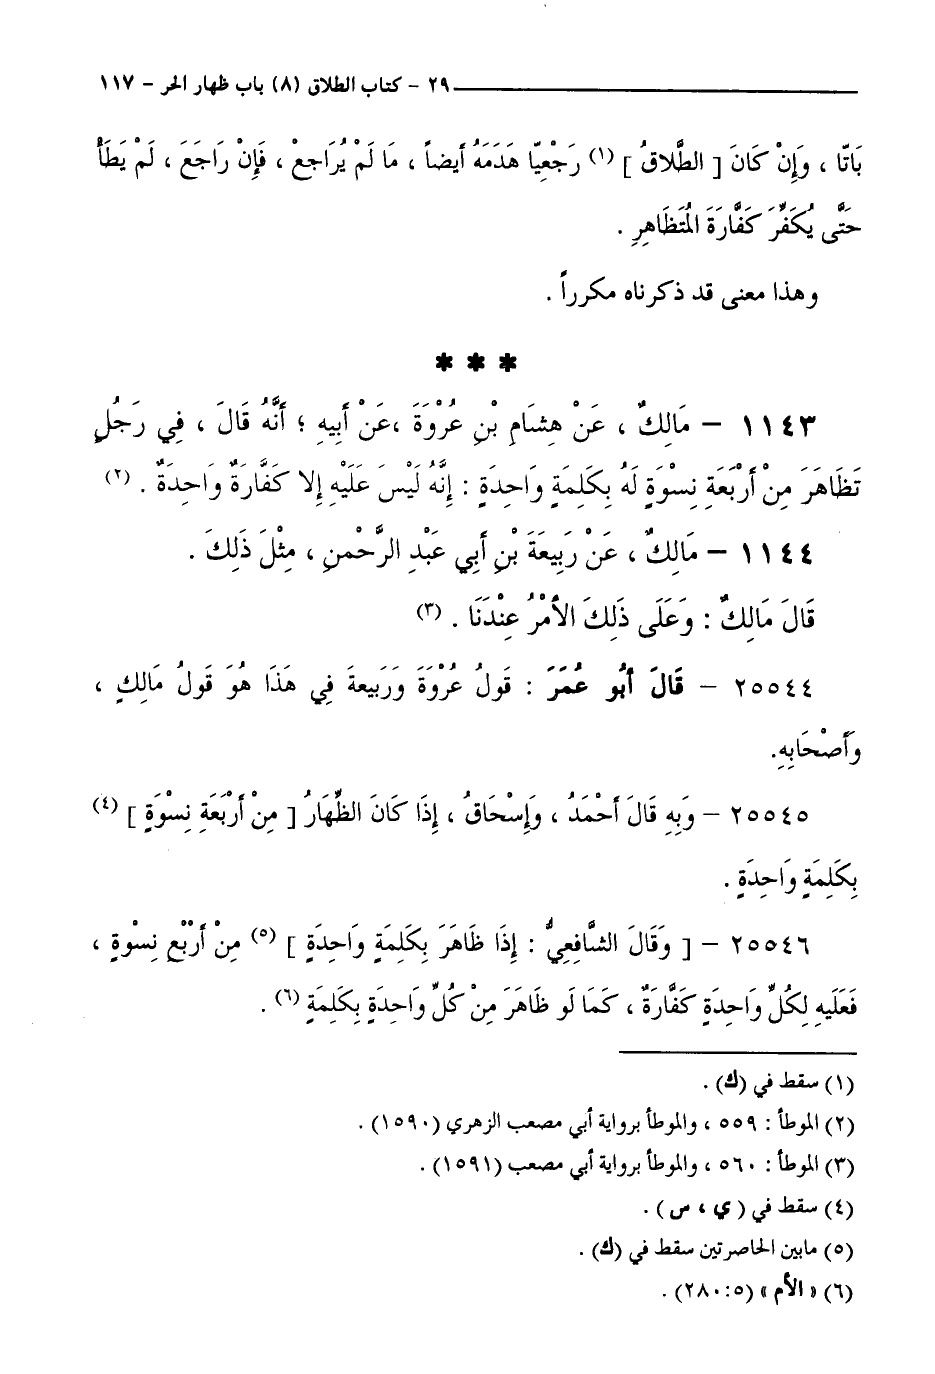 ٢٩ - كتاب الطلاق (٨) باب ظهار الحر - ١١٧
بَاتّا ، وَإِنْ كَانَ [ الطَّلاقُ ] (١) رَجْعِيّا هَدَمَهُ أيضاً ، مَا لَمْ يُرَاجعْ ، فَإِنْ رَاجَعَ ، لَمْ يَطَأْ
حَتَّى يُكَفِّرَ كَفَّارَةَ الْمُتَظَاهِرِ .
وهذا معنى قد ذكرناه مكرراً .
* * *
١١٤٣ - مَالِكٌ ، عَنْ هِشَامِ بْنِ عُرْوَةَ ،عَنْ أَبِيهِ ؛ أَنَّهُ قَالَ ، فِي رَجُلٍ
تَظَاهَرَ مِنْ أَرْبَعَةِ نِسْوَةٍ لَهُ بِكَلِمَةٍ وَاحِدَةٍ : إِنَّهُ لَيْسَ عَلَيْهِ إِلا كَفَّارَةٌ وَاحِدَةٌ . (٢)
١١٤٤ - مَالِكٌ ، عَنْ رَبِيعَةَ بْنِ أَبِي عَبْدِ الرَّحْمنِ ، مِثْلَ ذَلِكَ .
قَالَ مَالِكٌ : وَعَلَى ذَلِكَ الأَمْرُ عِنْدَنَا . (٣)
٢٥٥٤٤ - قَالَ أَبُو عُمَرَ : قَولُ عُرْوَةَ وَرَبِيعةَ فِي هَذَا هُوَ قَولُ مَالِكٍ ،
وَأَصْحَابِهِ.
٢٥٥٤٥ - وَبِهِ قَالَ أَحْمَدُ ، وَإِسْحَاقُ ، إِذَا كَانَ الظِّهَارُ [ مِنْ أَرْبَعَةِ نِسْوَةٍ ] (٤)
بِكَلِمَةٍ وَاحِدَةٍ .
٢٥٥٤٦ - [ وَقَالَ الشَّافِعِيُّ : إِذَا ظَاهَرَ بِكَلِمَةٍ وَاحِدَةٍ ] (٥) مِنْ أَرْبْعِ نِسْوةٍ ،
فَعَلَيهِ لِكُلِّ وَاحِدَةٍ كَفَّارَةٌ ، كَمَا لَو ظَاهَرَ مِنْ كُلِّ وَاحِدَةٍ بِكَلِمَةٍ (٦) .
(١) سقط في (ك) .
(٢) الموطأ : ٥٥٩ ، والموطأ برواية أبي مصعب الزهري (١٥٩٠) .
(٣) الموطأ : ٥٦٠ ، والموطأ برواية أبي مصعب (١٥٩١) .
(٤) سقط في ( ي ، س ) .
(٥) مابين الحاصرتين سقط في (ك) .
(٦) « الأم » (٥:٢٨٠) .